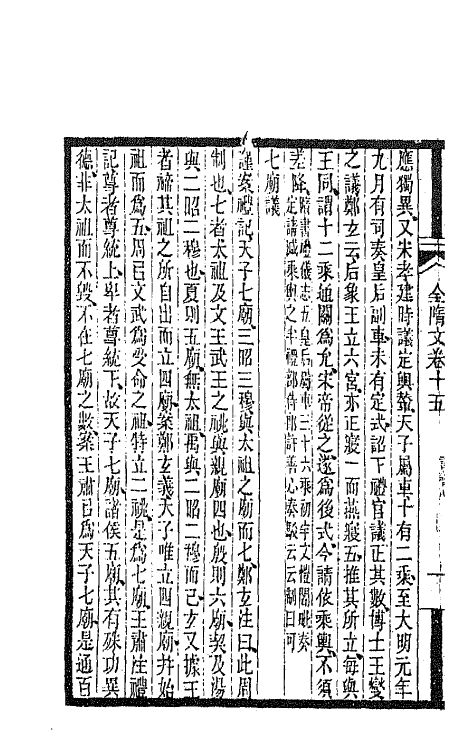 全隋文卷十五
應獨異又宋孝建時議定輿輦天子屬車十有二乘至大明元年
九月有司奏皇后副車未有定式詔下禮官議正其數博士王燮
之議鄭玄云后象王立六宮亦正寢一而燕寢五推其所立每與
王同謂十二乘通關爲允宋帝從之遂爲後式今請依乘輿不須
差降隋書禮儀志五皇后屬車三十六乘初宇文愷閻毗奏
定請減乘輿之半禮部侍郎許善心奏駁云云制曰可
七廟議
謹案禮記天子七廟三昭三穆與太祖之廟而七鄭玄注曰此周
制也七者太祖及文王武王之祧與親廟四也殷則六廟契及湯
與二昭二穆也夏則五廟無太祖禹與二昭二穆而已玄又據王
者禘其祖之所自出而立四廟案鄭玄義天子唯立四親廟幷始
祖而爲五周已文武爲受命之祖特立二祧是爲七廟王肅注禮
記尊者尊統上卑者尊統下故天子七廟諸侯五廟其有殊功異
德非太祖而不毀不在七廟之數案王肅已爲天子七廟是通百